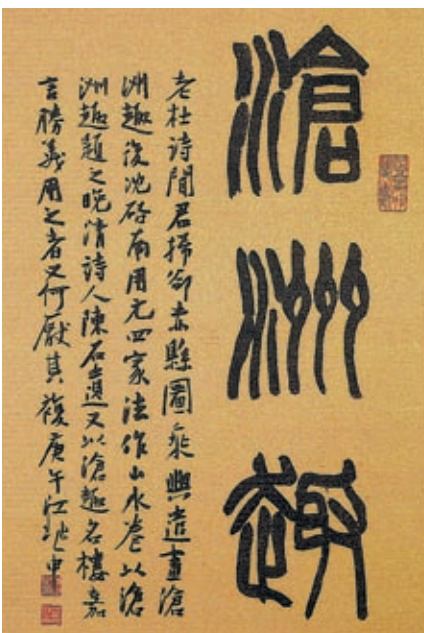 滄洲趣
老杜詩聞君掃卻赤縣圖乘興遣畫滄
洲趣後沈啓南用元四家法作山水卷以滄
洲趣題之晚清詩人陳石遺又以滄趣名樓嘉
言勝義用之者又何厭其複庚午江兆申